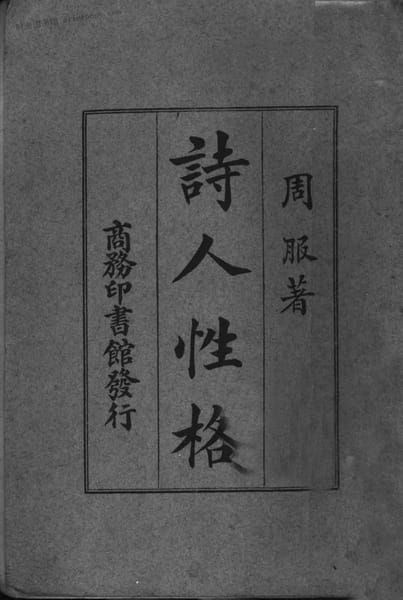 周服著
詩人性格
商務印書館發行